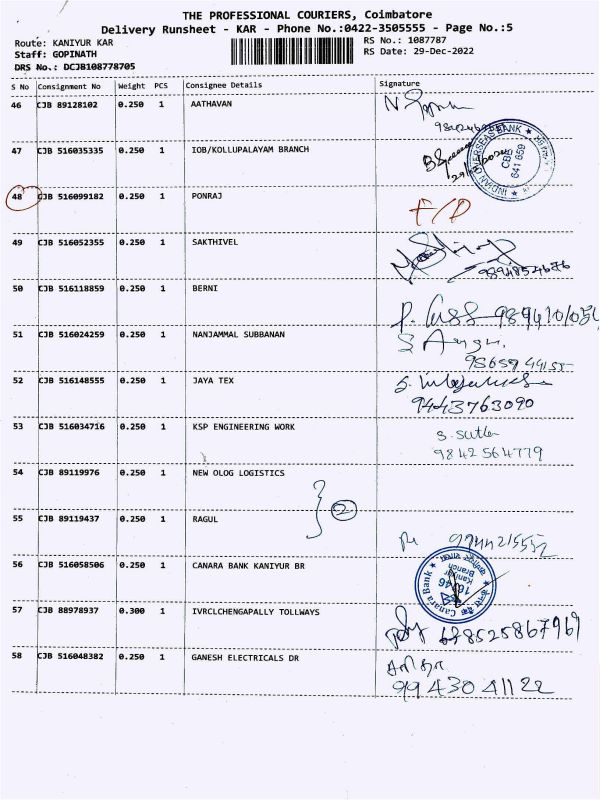 THE PROFESSIONAL COURIERS, Coimbatore
Delivery Runsheet - KAR - Phone No.:0422-3505555 - Page No.:5
Route: KANIYUR KAR
RS No.: 1087787
Staff: GOPINATH
RS Date: 29-Dec-2022
DRS No.: DCJB108778705
S No Consignment No Weight PCS Consignee Details Signature
46 CJB 89128102 0.250 1 AATHAVAN
47 CJB 516035335 0.250 1 IOB/KOLLUPALAYAM BRANCH
INDIAN OVERSEAS BANK
CBE
641 659
48 CJB 516099182 0.250 1 PONRAJ
F/D
49 CJB 516052355 0.250 1 SAKTHIVEL
9894854676
50 CJB 516118859 0.250 1 BERNI
51 CJB 516024259 0.250 1 NANJAMMAL SUBBANAN
52 CJB 516148555 0.250 1 JAYA TEX
9443763090
53 CJB 516034716 0.250 1 KSP ENGINEERING WORK
9842564779
54 CJB 89119976 0.250 1 NEW OLOG LOGISTICS
2
55 CJB 89119437 0.250 1 RAGUL
9944215552
56 CJB 516058506 0.250 1 CANARA BANK KANIYUR BR
Canara Bank
Kaniyur
Branch
57 CJB 88978937 0.300 1 IVRCLCHENGAPALLY TOLLWAYS
58 CJB 516048382 0.250 1 GANESH ELECTRICALS DR
9943041122